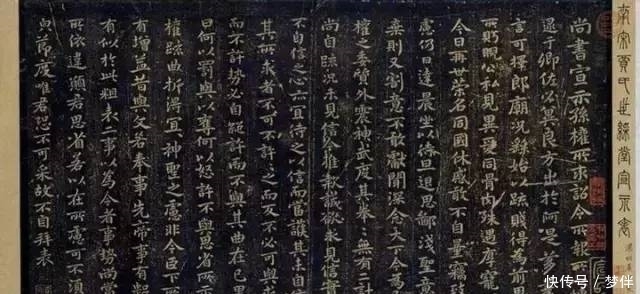 南宋賈氏世綵堂宣示表
尚書宣示孫權所求詔令所報
逮于卿佐必冀良方出於阿是芻
言可擇郎廟況繇始以疏賤得為前恩
所盻睨公私見異愛同骨肉殊遇厚寵
今日再世榮名同國休慼敢不自量竊致
慮仍日達晨坐以待旦退思鄙淺聖意
棄則又割意不敢獻聞深念天下今為
權之委質外震神武度其拳拳無有
尚自疏況未見信今推款誠欲求見信實
不自信之心亦宜待之以信而當護其未自
其所求者不可不許許之而反不必可與求
而不許勢必自絕許而不與其曲在己里
曰何以罰與以奪何以怒許不與思省所
權疏曲折得宜宜神聖之慮非今臣下所
有增益昔與文若奉事先帝事有數
有似於此粗表二事以為今者事勢尚當
所依違願君思省若以在所慮可不須
自謹節度唯君恐不可采故不自拜表
快传号 / 梦伴